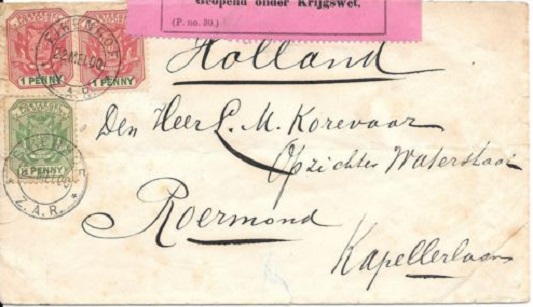 Geopend onder Krijgswet.
(P. no. 39.)
Holland
Den Heer L. M. Korevaar
Opzichter Waterstaat
Roermond
Kapellerlaan
1 PENNY
1 PENNY
PENNY
22 MEI.00
Z.A.R.
Z.A.R.